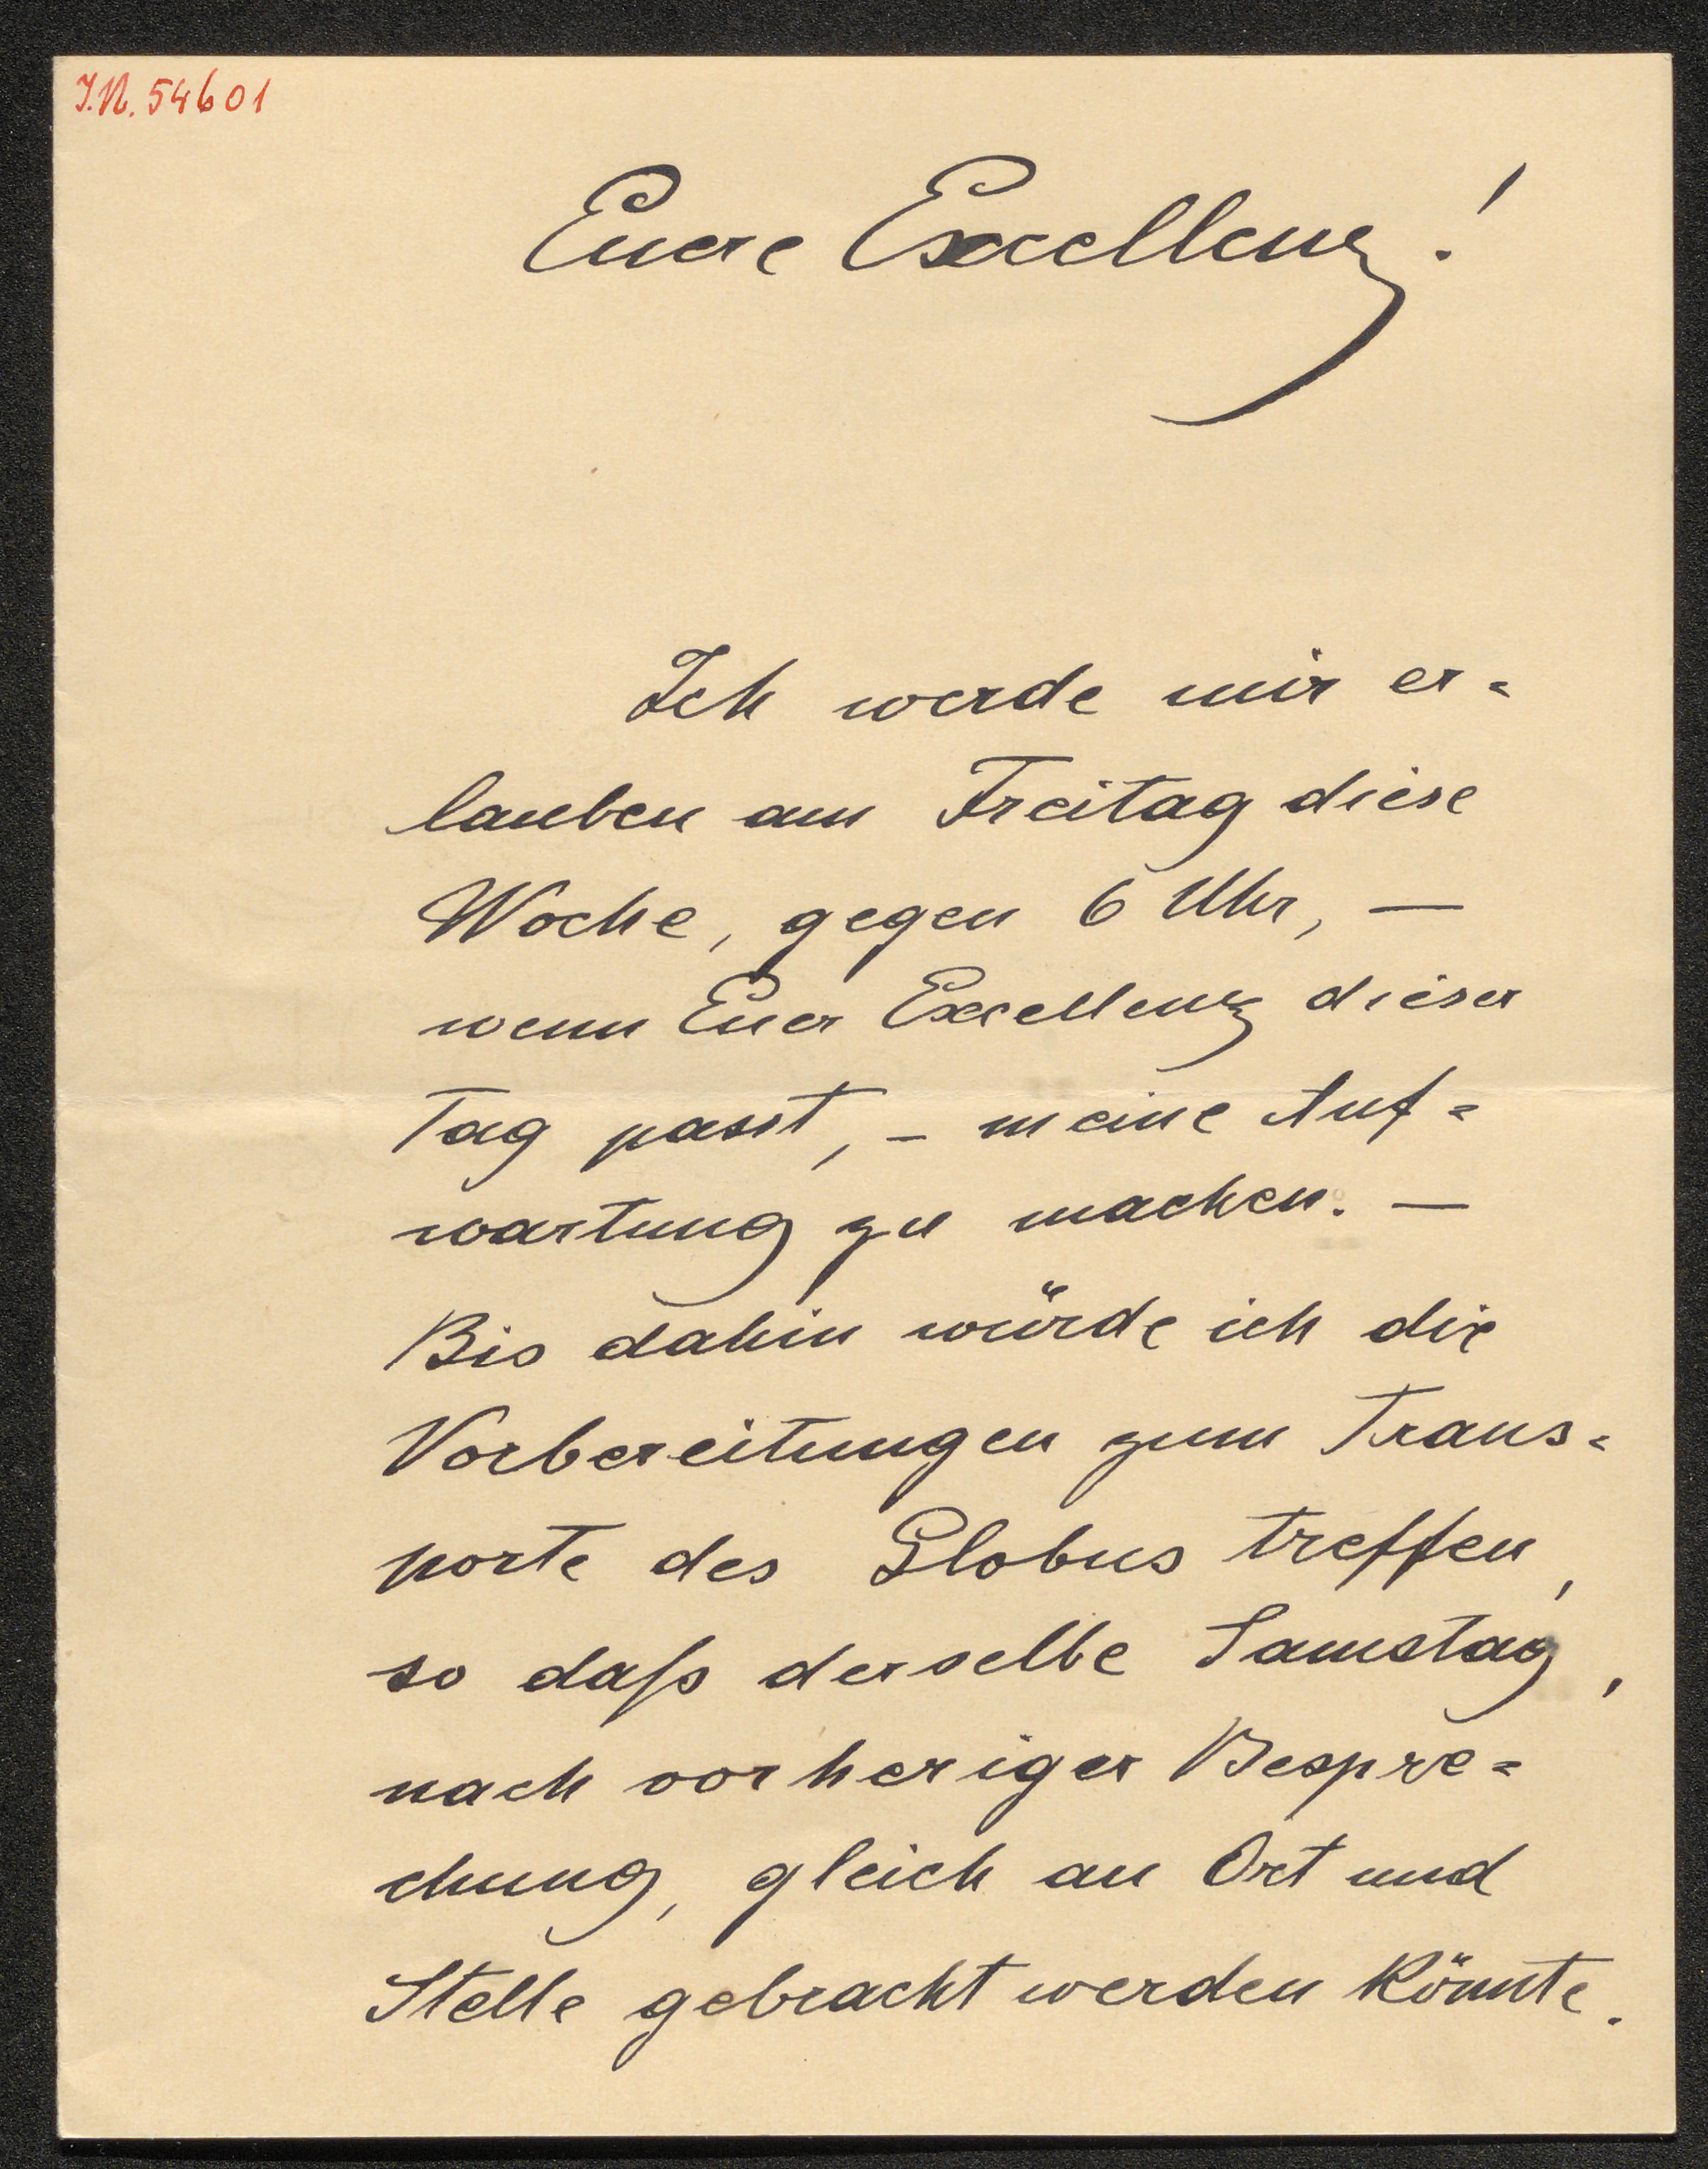 I.N. 54601
Euere Excellenz!
Ich werde mir er-
lauben am Freitag diese
Woche, gegen 6 Uhr, —
wenn Euer Excellenz dieser
Tag passt, - meine Auf-
wartung zu machen. —
Bis dahin würde ich die
Vorbereitungen zum Trans-
porte des Globus treffen,
so daſs derselbe Samstag,
nach vorheriger Bespre-
chung, gleich an Ort und
Stelle gebracht werden könnte.